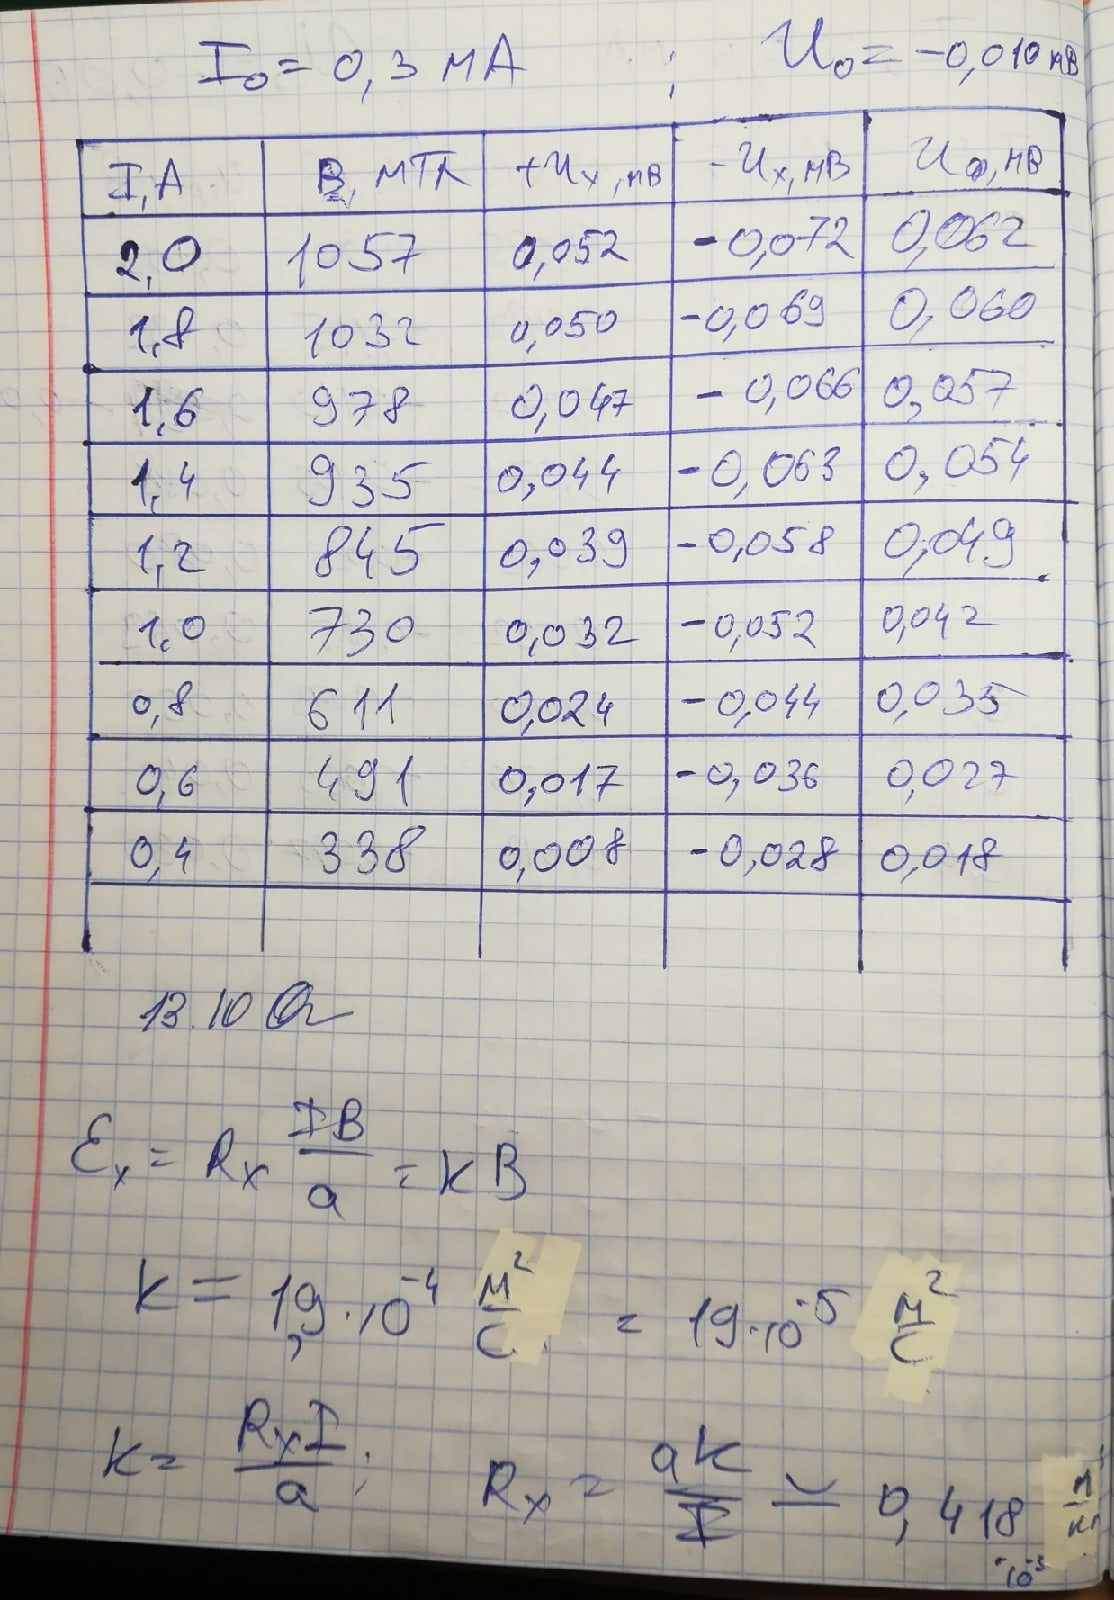 I₀ = 0,3 мА ; U₀ = -0,010 мВ
I, A B, мТл +Uₓ, мВ -Uₓ, мВ U, мВ
2,0 1057 0,052 -0,072 0,062
1,8 1032 0,050 -0,069 0,060
1,6 978 0,047 -0,066 0,057
1,4 935 0,044 -0,063 0,054
1,2 845 0,039 -0,058 0,049
1,0 730 0,032 -0,052 0,042
0,8 611 0,024 -0,044 0,035
0,6 491 0,017 -0,036 0,027
0,4 338 0,008 -0,028 0,018
13.10
Ɛₓ = Rₓ IB/a = kB
k = 1,9·10⁻⁴ м²/с = 19·10⁻⁵ м²/с
k = RₓI/a ; Rₓ = ak/I ≃ 0,418 ·10⁻³